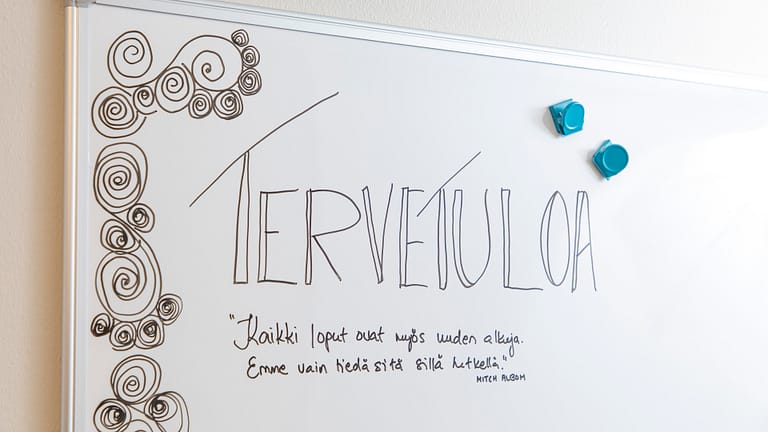 TERVETULOA
"Kaikki loput ovat myös uuden alkuja.
Emme vain tiedä sitä sillä hetkellä."
MITCH ALBOM